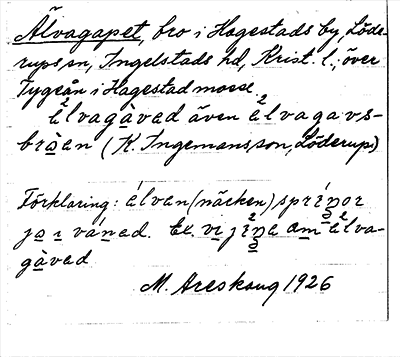 Älvagapet, bro i Hagestads by, Löde-
rups sn, Ingelstads hd, Krist. l., över
Tygeån i Hagestad mosse.
elvagàved även elvagavs-
bròen (K. Ingemansson, Löderup)
Förklaring: élven (näcken) sprínor
ja i váned. Ex. vi jíne am elva-
gàved
M. Areskoug 1926